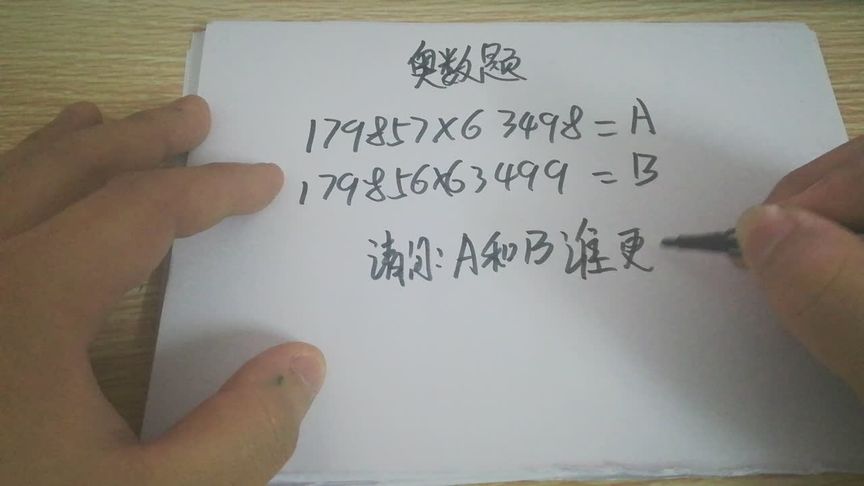 奥数题
179857×63498=A
179856×63499=B
请问:A和B谁更